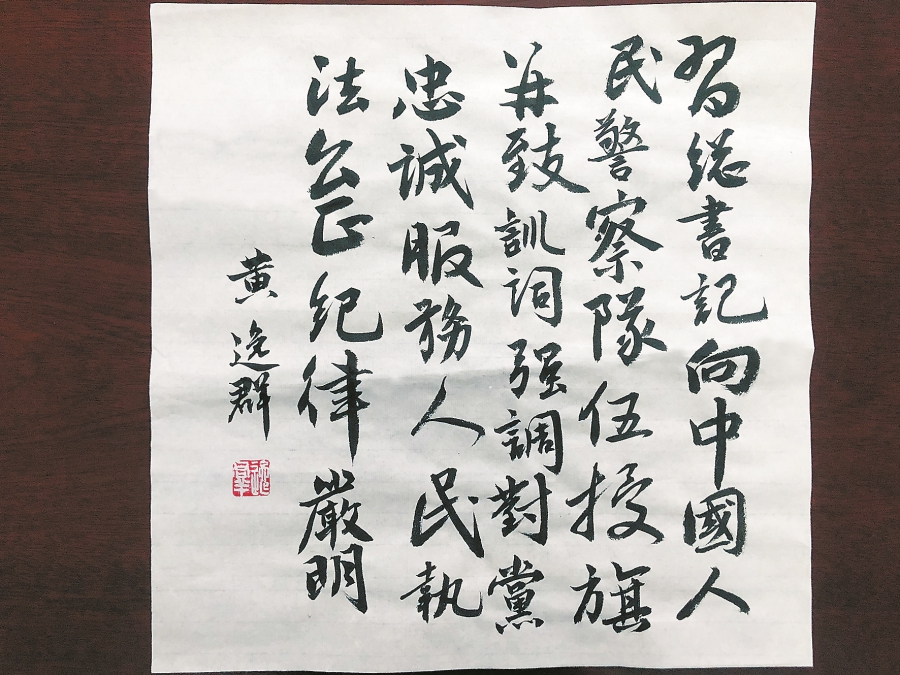 習總書記向中國人
民警察隊伍授旗
并致訓詞强調對黨
忠誠服務人民執
法公正紀律嚴明
黄逸群
逸群